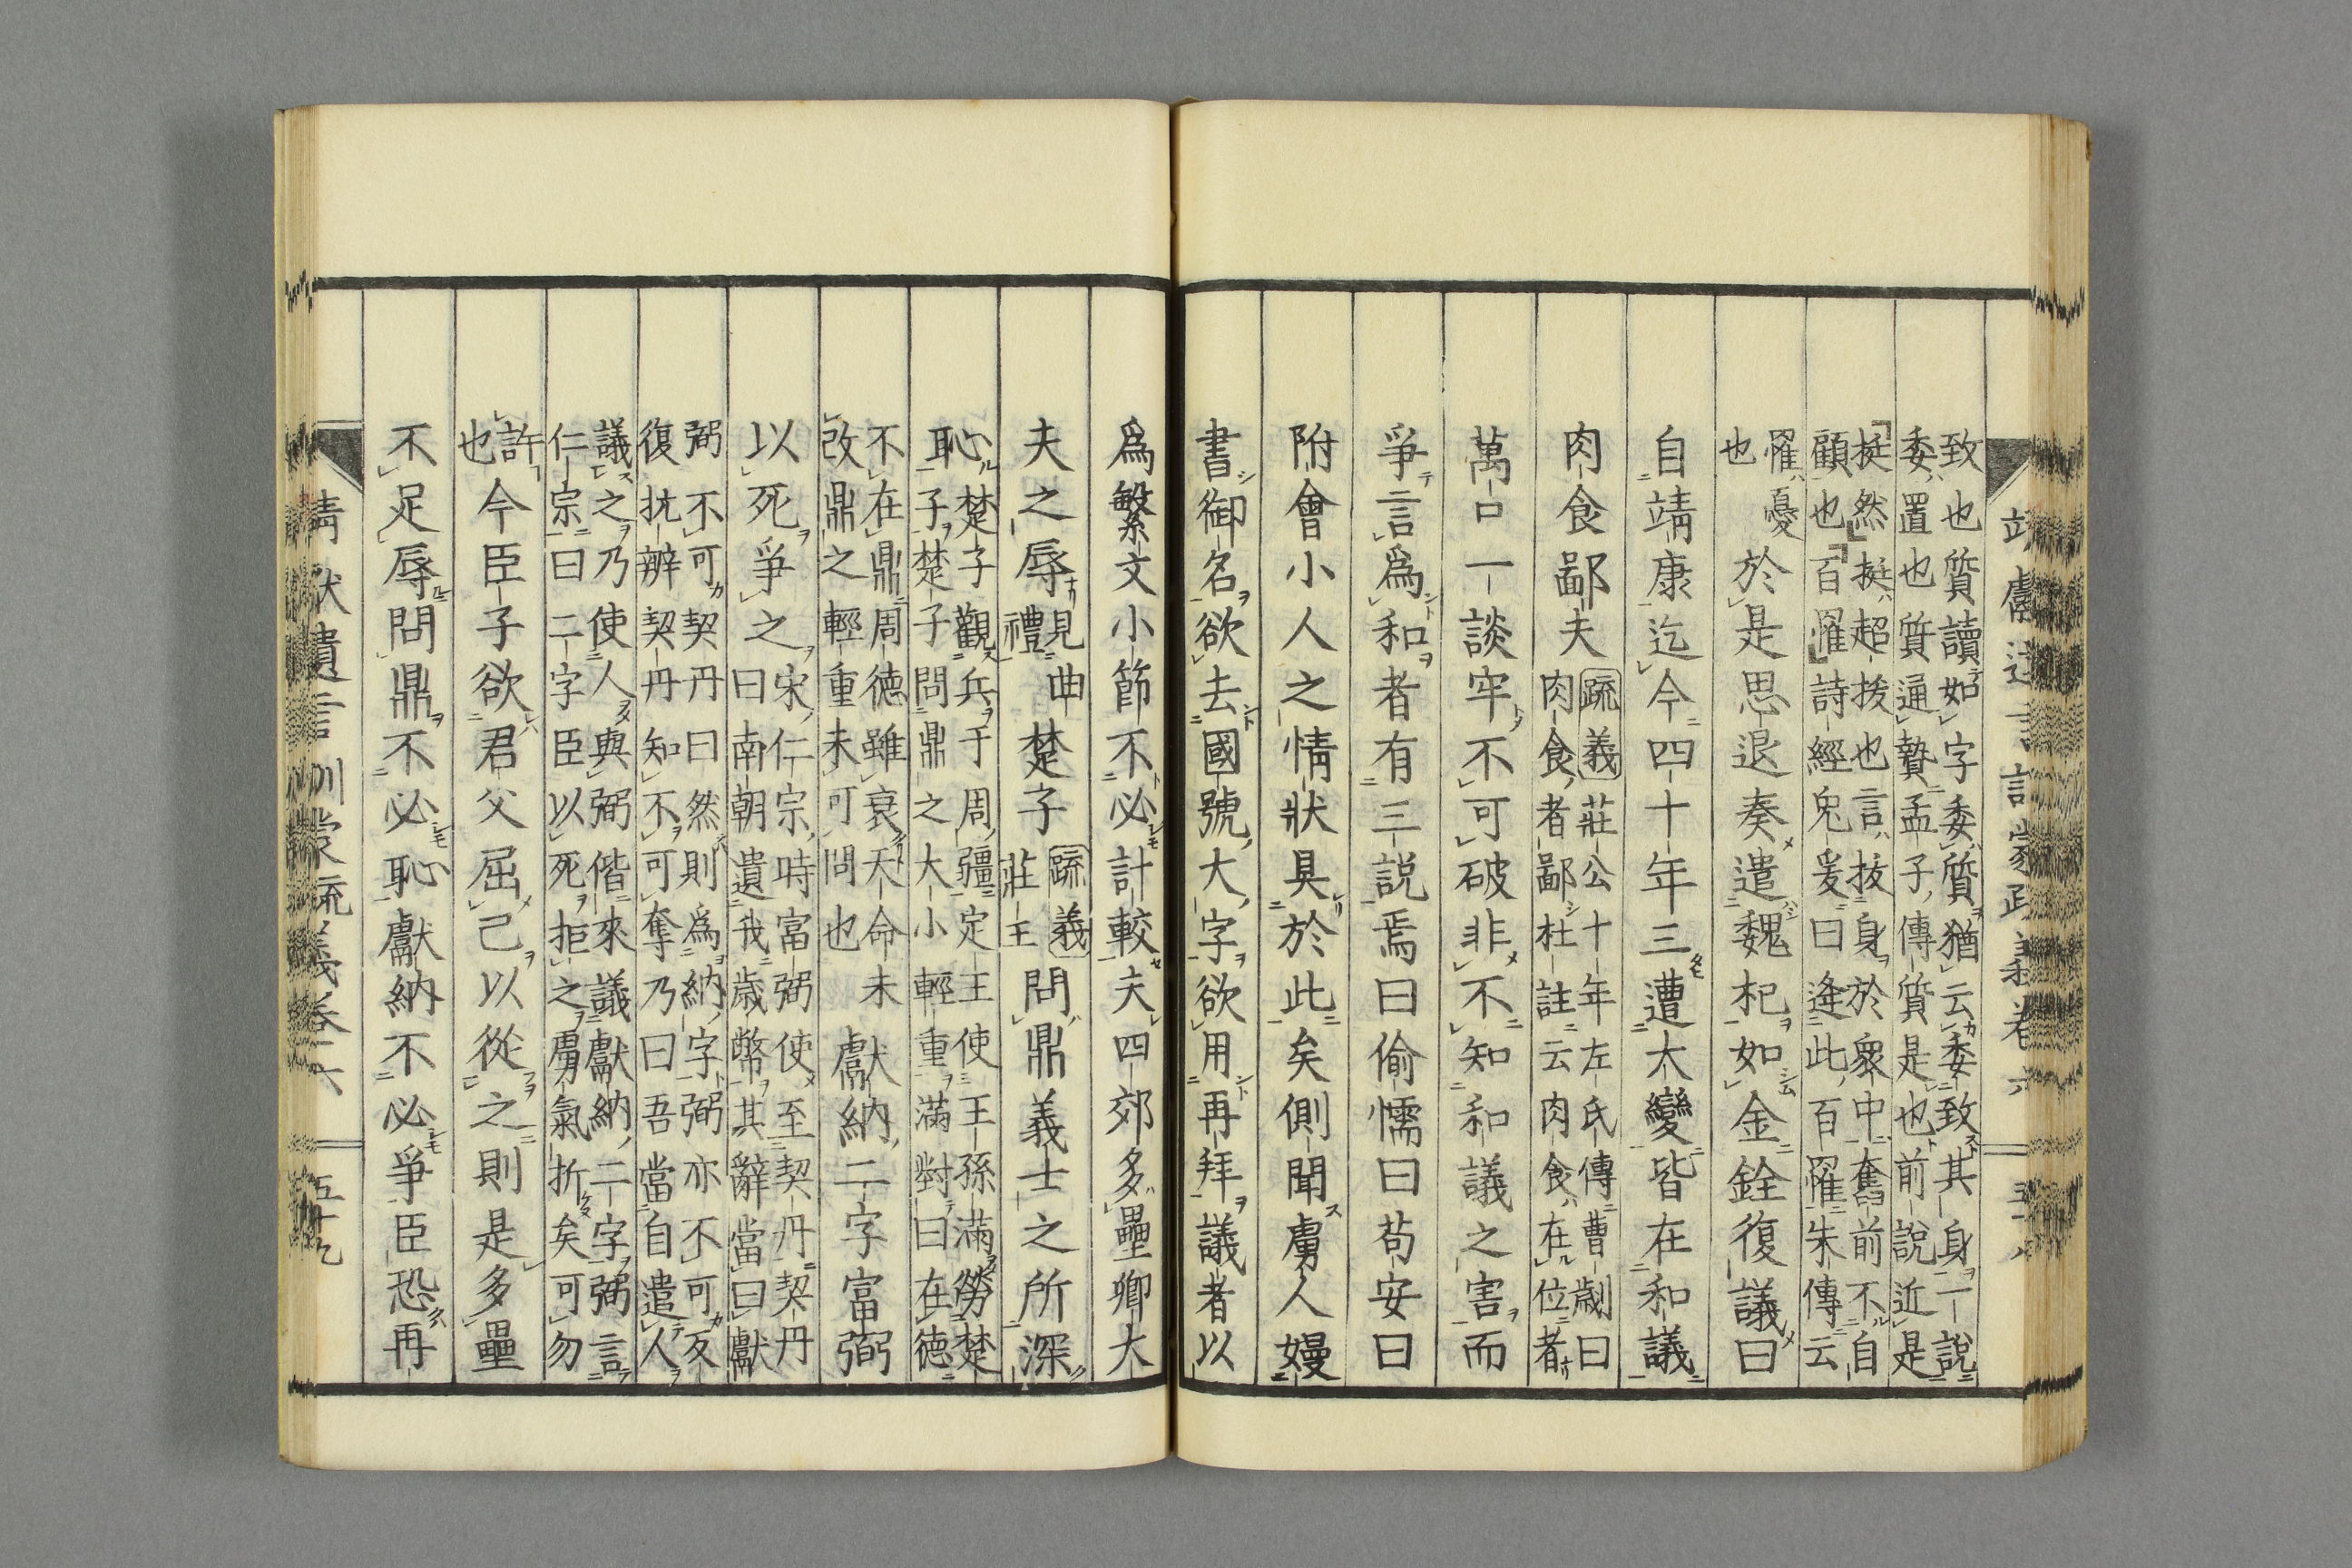 致也質讀如字委質猶云委致其身一說
委置也質通贄孟子傳質是也前說近是
挺然挺超拔也言拔身於衆中奮前不自
顧也百罹詩經兎爰曰逢此百罹朱傳云
罹憂
也
於是思退奏遣魏杞如金銓復議曰
自靖康迄今四十年三遭大變皆在和議
肉食鄙夫
疏義莊公十年左氏傳曹劌曰
肉食者鄙杜註云肉食在位者
萬口一談牢不可破非不知和議之害而
爭言爲和者有三説焉曰偷懦曰苟安曰
附會小人之情狀具於此矣側聞虜人嫚
書御名欲去國號大字欲用再拜議者以
爲繁文小節不必計較夫四郊多壘卿大
夫之辱
見曲
禮
楚子
疏義
莊王
問鼎義士之所深
恥
楚子觀兵于周疆定王使王孫滿勞楚
子楚子問鼎之大小輕重滿對曰在德
不在鼎周德雖衰天命未
改鼎之輕重未可問也
獻納二字富弼
以死爭之
宋仁宗時富弼使至契丹契丹
曰南朝遺我歲幣其辭當曰獻
弼不可契丹曰然則爲納字弼亦不可反
復抗辨契丹知不可奪乃曰吾當自遣人
議之乃使人與弼偕來議獻納二字弼言
仁宗曰二字臣以死拒之虜氣折矣可勿
許
也
今臣子欲君父屈己以從之則是多壘
不足辱問鼎不必恥獻納不必爭臣恐再